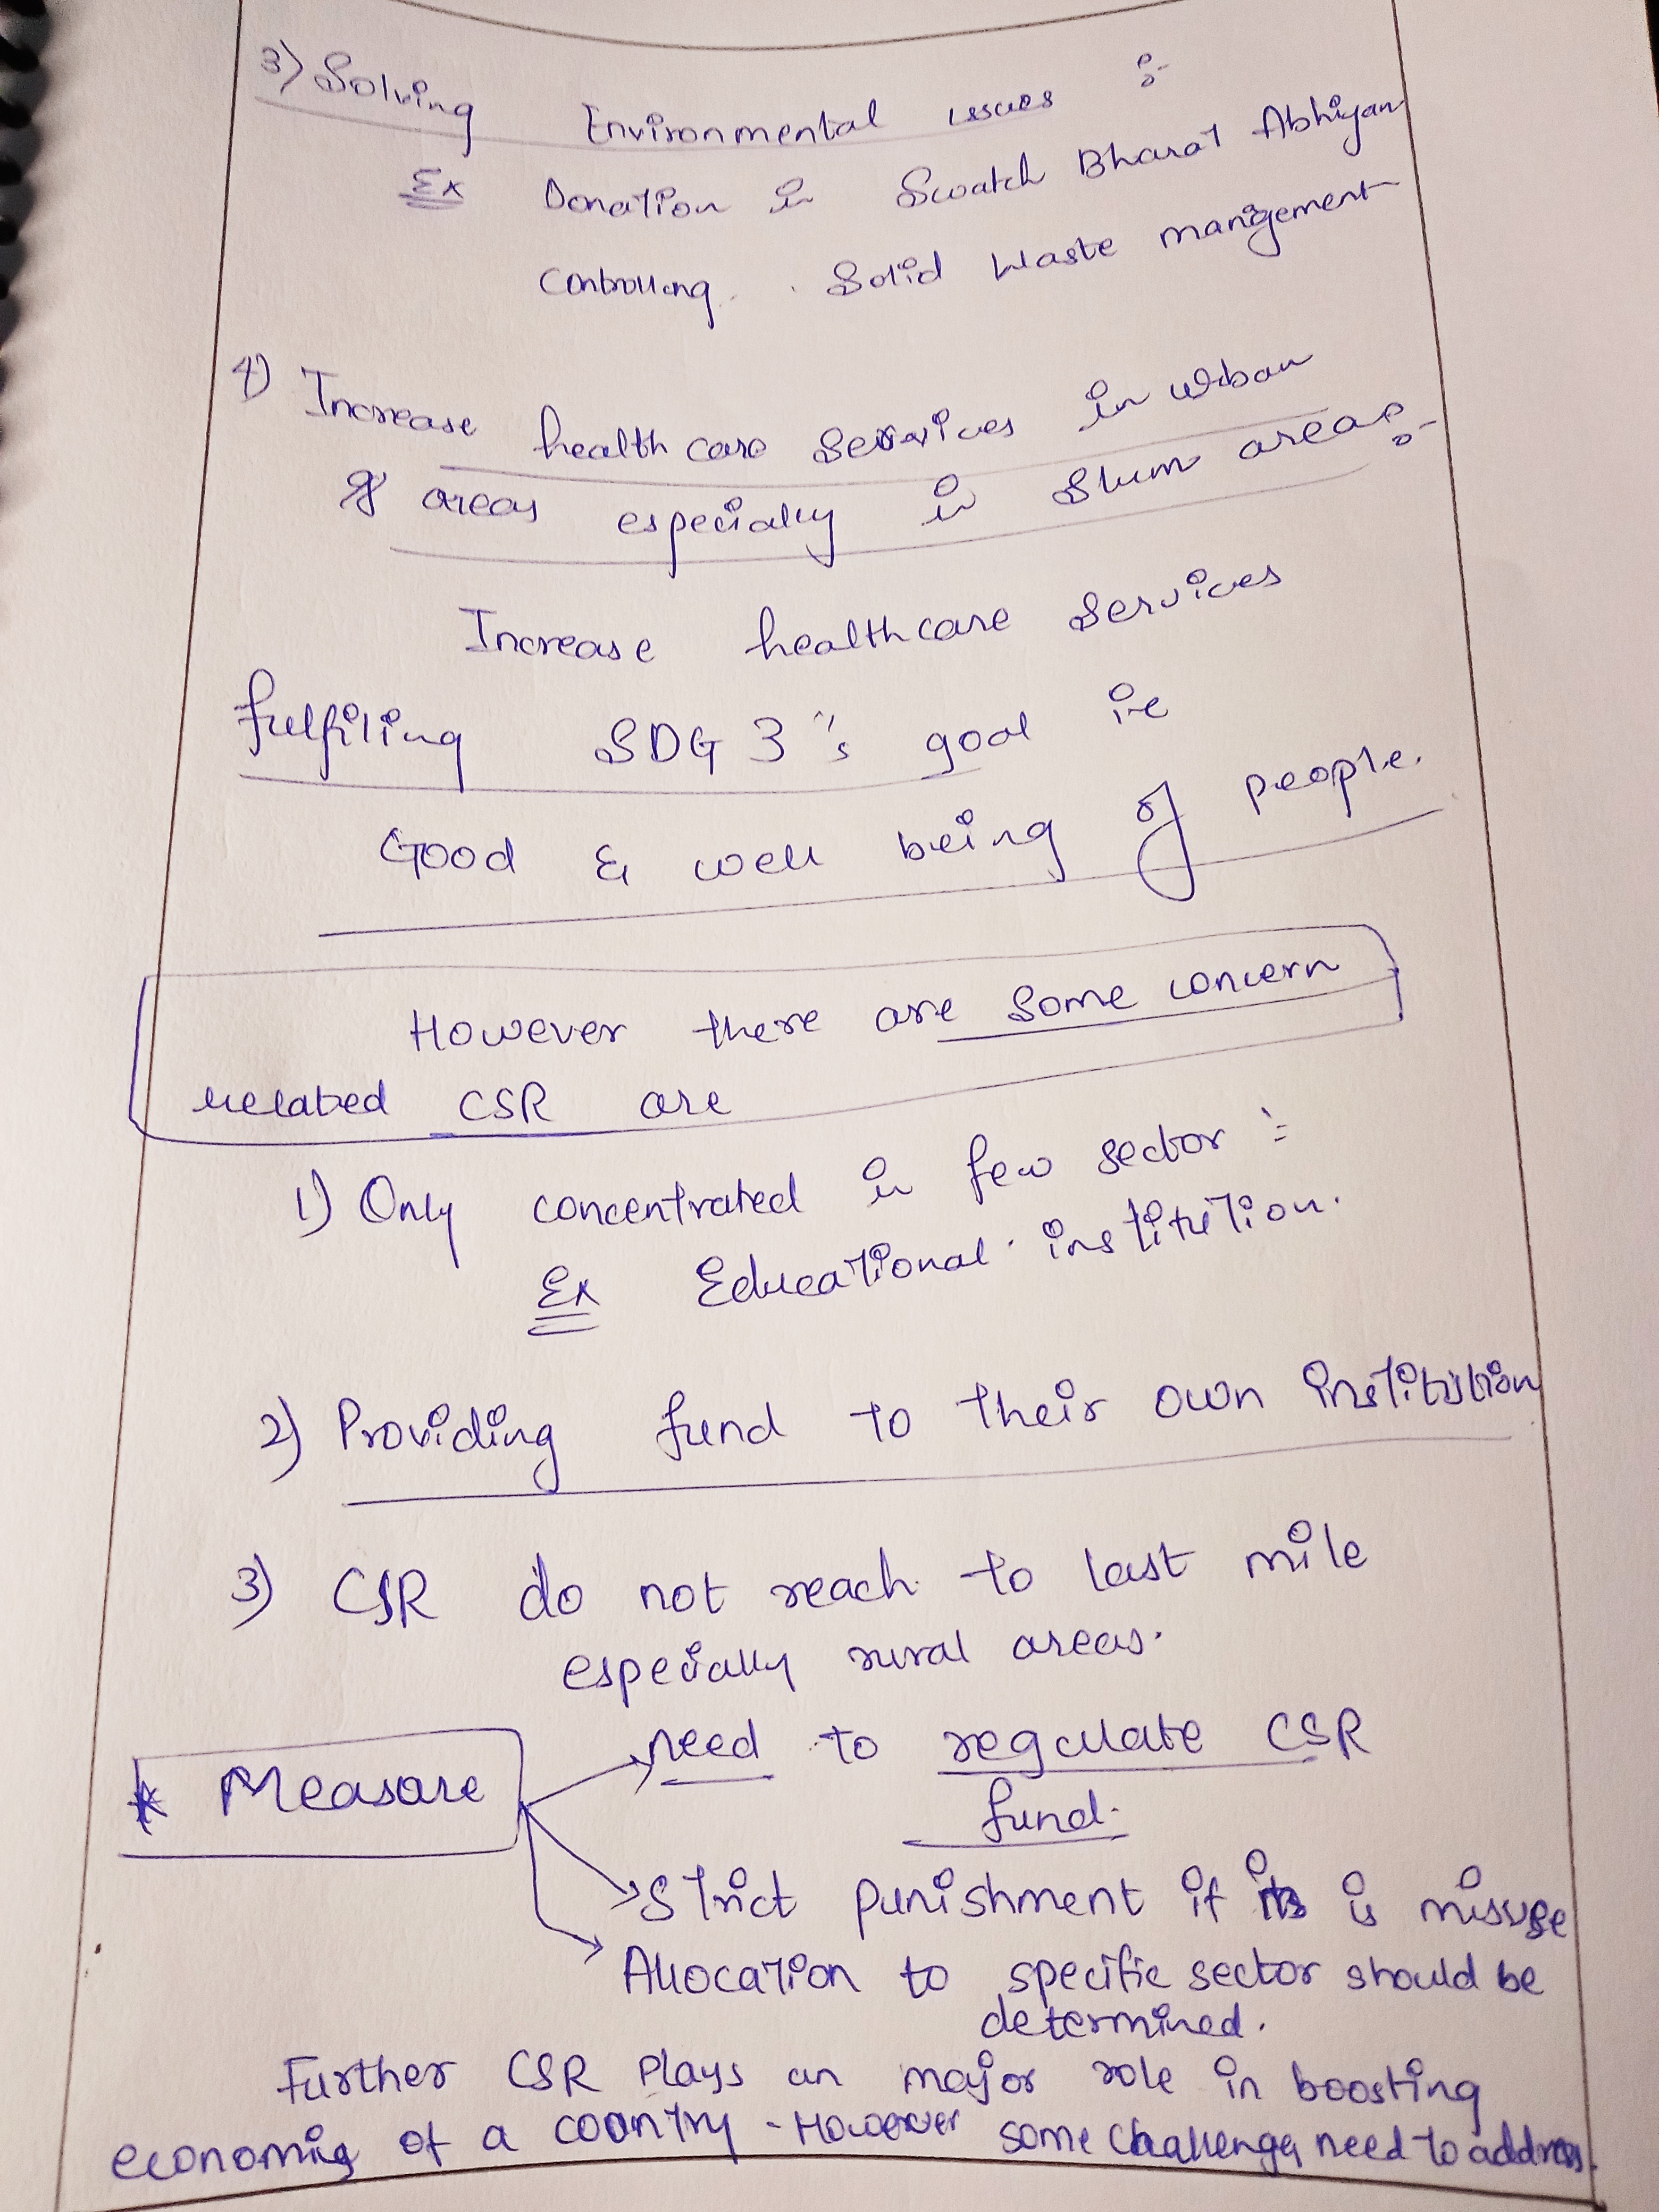 3) Solving Environmental issues :-
Ex Donation in Swatch Bharat Abhiyan
Controlling Solid Waste mangement
4) Increase health care services in urban
areas especially in slum areas:-
Increase healthcare services
fulfiling SDG 3's goal i.e
Good & well being of people.
However there are some concern
related CSR are
1) Only concentrated in few sector :-
Ex Educational institution.
2) Providing fund to their own institution
3) CSR do not reach to last mile
especially rural areas.
* Measure
need to regulate CSR
fund.
Strict punishment if is misuse
Allocation to specific sector should be
determined.
Further CSR Plays an major role in boosting
economic of a country. However some challenges need to address.